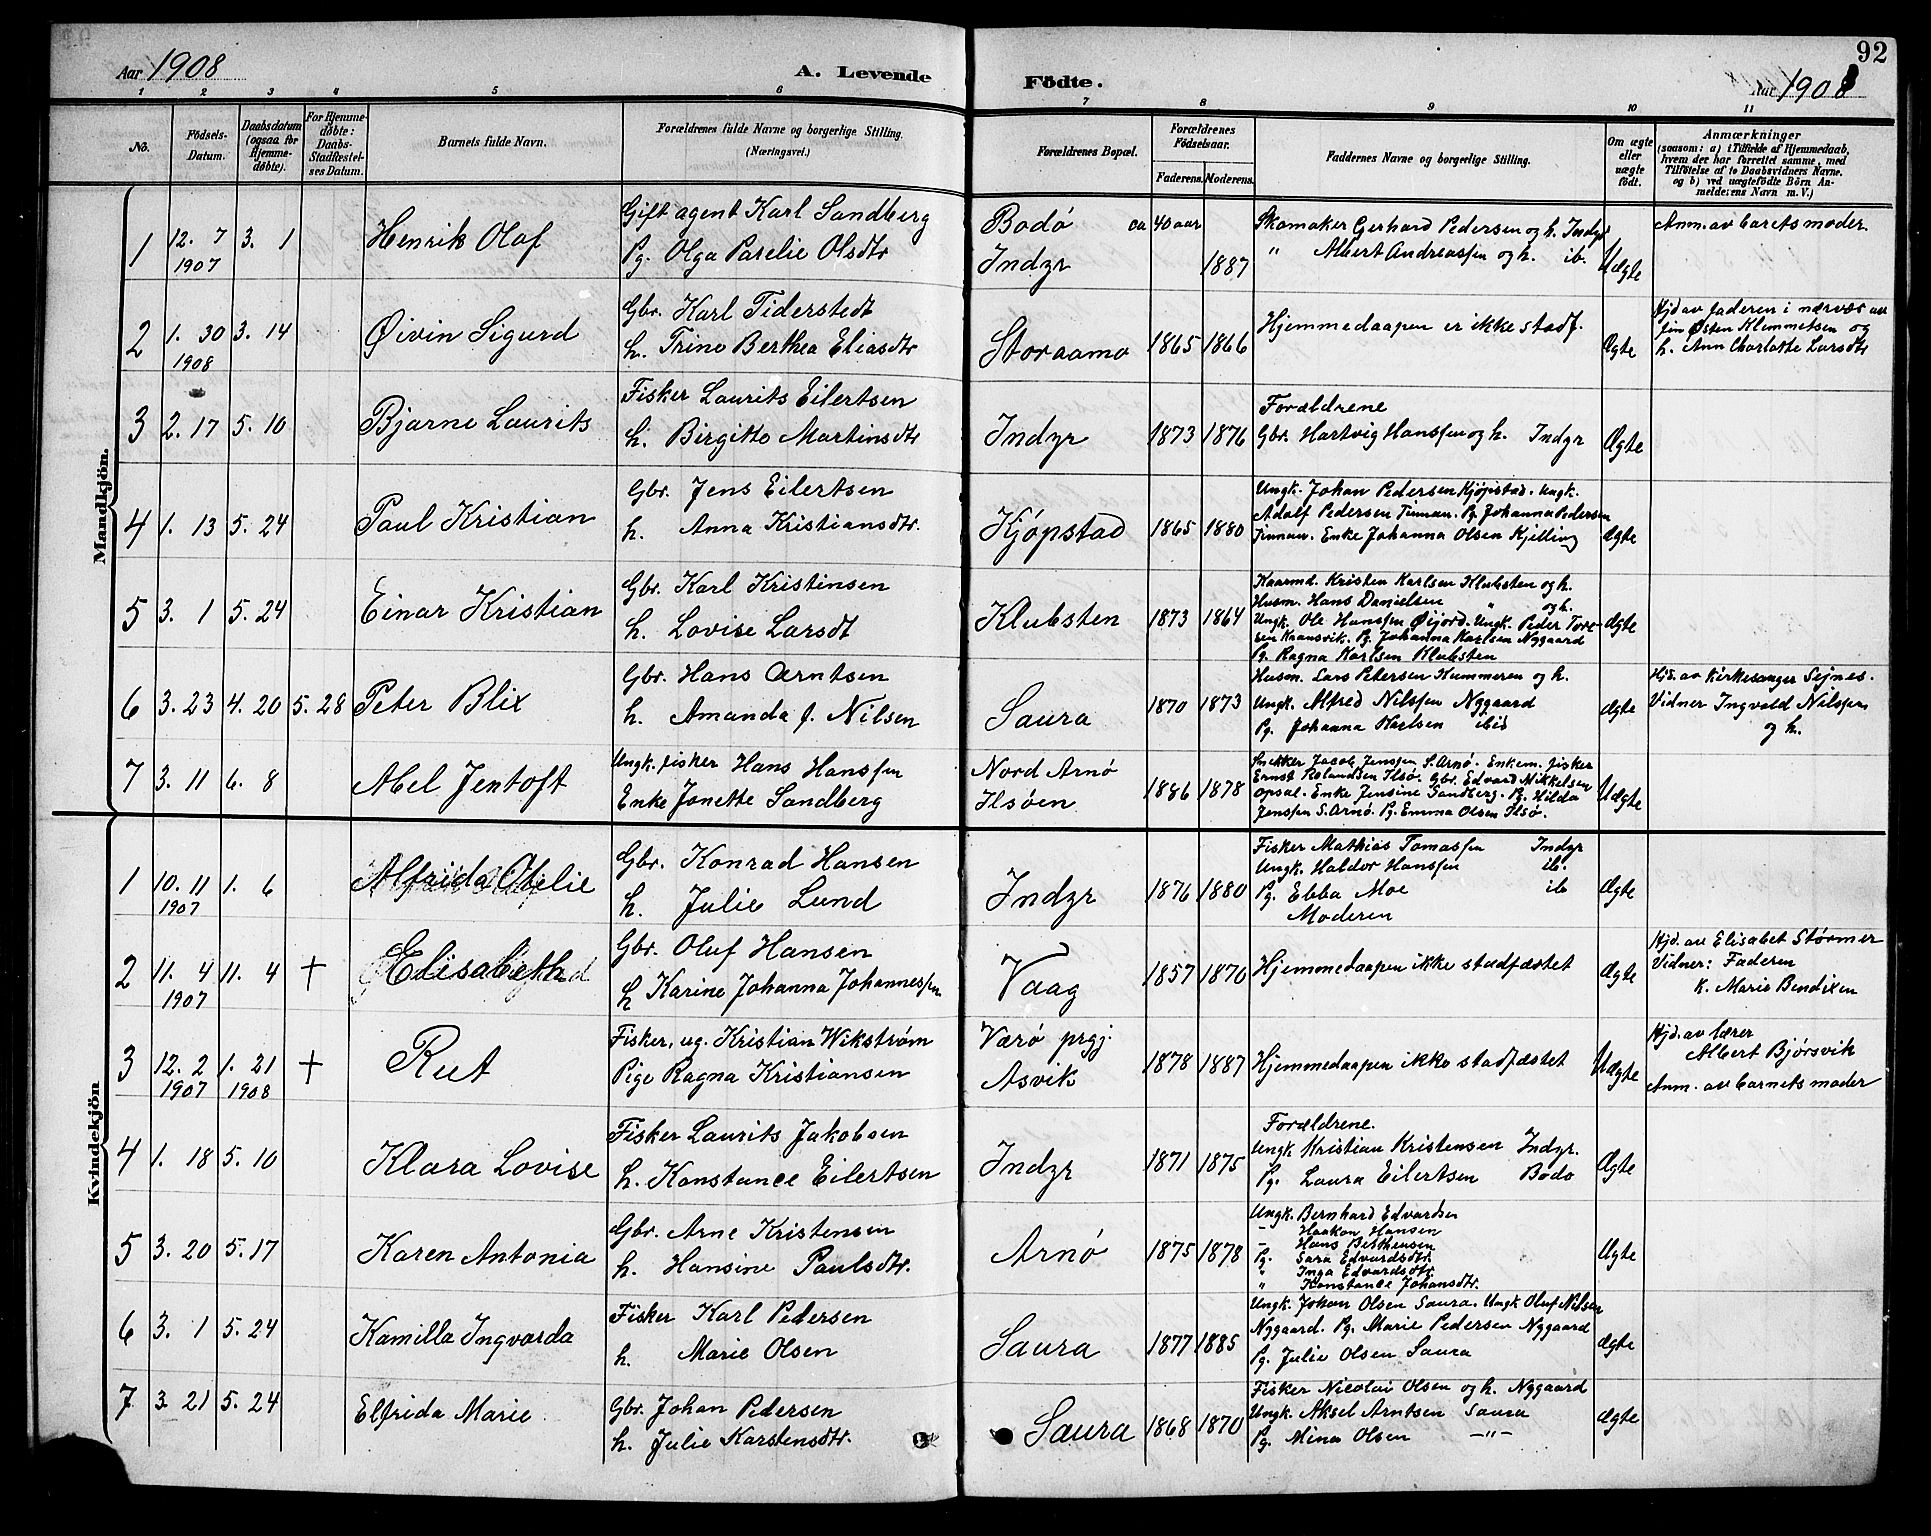 92
Aar 1908
A. Levende
Födte.
Aar 1908
1 2 3 4 5 6 7 8 9 10 11
No.
Födsels-Datum.
Daabsdatum (ogsaa for Hjemmedøbte).
For Hjemmedøbte: Daabs-Stadfestelses Datum.
Barnets fulde Navn.
Forældrenes fulde Navne og borgerlige Stilling. (Næringsvei.)
Forældrenes Bopæl.
Forældrenes Födselsaar.
Faderens. Moderens.
Faddernes Navne og borgerlige Stilling.
Om ægte eller uægte födt.
Anmærkninger
(saasom: a) i Tilfælde af Hjemmedaab, hvem der har forrettet samme, med Tilföielse af to Daabsvidners Navne. og b) ved uægtefödte Börn Anmelderens Navn m. V.)
Mandkjön.
1 12. 7 1907 3. 1 Henrik Olaf
Gift agent Karl Sandberg
Pg. Olga Parelie Olsdtr
Bodø ca 40 aar
Indyr 1887
Skomaker Gerhard Pedersen og h. Indyr
" Albert Andreassen og h. ib.
Uægte
Anm. av barets moder.
2 1. 30 1908 3. 14 Øivin Sigurd
Gbr. Karl Tiderstedt
h. Trine Berthea Eliasdtr
Storaamo 1865 1866
Hjemmedaapen er ikke stadf.
Ægte
Hjd av faderen i nærvær av
Østen Klemmetsen og
h. Ann Charlotte Larsdtr
3 2. 17 5. 10 Bjarne Laurits
Fisker Laurits Eilertsen
h. Birgitte Martinsdtr
Indyr 1873 1876
Forældrene
Gbr. Hartvig Hanssen og h. Indyr
Ægte
4 1. 13 5. 24 Paul Kristian
Gbr. Jens Eilertsen
h. Anna Kristiansdtr.
Kjøpstad 1865 1880
Ungk. Johan Pedersen Kjøpstad. Ungk.
Adolf Pedersen Finnan. Pg. Johanna Pedersen
Finnan. Enke Johanna Olsen Kjelling
Ægte
5 3. 1 5. 24 Einar Kristian
Gbr. Karl Kristinsen
h. Lovise Larsdt
Klubsten 1873 1864
Kaarmd. Kristen Karlsen Klubsten og h.
Husm. Hans Danielsen " og h.
Ungk. Ole Hanssen Øijord. Ungk. Peder Tore-
sen Kaansvik. Pg. Johanna Karlsen Nygaard
Pg. Ragna Karlsen Klubsten
Ægte
6 3. 23 4. 20 5. 28 Peter Blix
Gbr. Hans Arntsen
h. Amanda J. Nilsen
Saura 1870 1873
Husm. Lars Petersen Kummeren og h.
Ungk. Alfred Nilssen Nygaard
Pg. Johanna Karlsen ibid
Ægte
Hjd. av Kirkesanger Sejnes.
Vidner Ingvald Nilssen
og h.
7 3. 11 6. 8 Abel Jentoft
Ungk. fisker Hans Hanssen
Enke Jonette Sandberg
Nord Arnø
Ilsøen 1886 1878
Snekker Jacob Jenssen S. Arnø. Enkem. fisker
Ernst Rolandsen Ilsø. Gbr. Edvard Mikkelsen
Opsal. Enke Jensine Sandberg. Pg. Hilda
Jenssen S. Arnø. Pg. Emma Olsen Ilsø.
Uægte
Kvindekjön
1 10. 11 1907 1. 6 Alfrida Otelie
Gbr. Konrad Hansen
h. Julie Lund
Indyr 1876 1880
Fisker Mathias Tomassen Indyr
Ungk. Haldor Hanssen ib.
Pg. Ebba Moe ib
Moderen
Ægte
2 11. 4 1907 11. 4 † Elisabeth
Gbr. Oluf Hansen
h Karine Johanna Johannessen
Vaag 1857 1870
Hjemmedaapen ikke stadfæstet
Ægte
Hjd. av Elisabet Størmer
Vidner: Faderen
k. Marie Bendixen
3 12. 2 1907 1. 21 1908 † Rut
Fisker, ug. Kristian Wikstrøm
Pige Ragna Kristiansen
Værø prgj.
Asvik 1878 1887
Hjemmedaapen ikke stadfæstet
Uægte
Hjd. av lærer
Albert Bjørsvik
Anm. av barnets moder
4 1. 18 5. 10 Klara Lovise
Fisker Laurits Jakobsen
h. Konstance Eilertsen
Indyr 1871 1875
Forældrene.
Ungk Kristian Kristensen Indyr.
Pg. Laura Eilertsen Bodø
Ægte
5 3. 20 5. 17 Karen Antonia
Gbr. Arne Kristensen
h. Hansine Paulsdtr.
Arnø 1875 1878
Ungk. Bernhard Edvardsen
– Haakon Hansen
– Hans Berthensen
Pg. Sara Edvardsdtr.
" Inga Edvardsdtr.
" Konstance Johansdtr.
Ægte
6 3. 1 5. 24 Kamilla Ingvarda
Fisker Karl Pedersen
h. Marie Olsen
Saura 1877 1885
Ungk. Johan Olsen Saura. Ungk Oluf Nilsen
Nygaard. Pg. Marie Pedersen Nygaard
Pg. Julie Olsen Saura
Ægte
7 3. 21 5. 24 Elfrida Marie
Gbr. Johan Pedersen
h. Julie Karstensdtr.
Saura 1868 1870
Fisker Nicolai Olsen og h. Nygaard
Ungk. Aksel Arntsen Saura
Pg. Mina Olsen –"–
Ægte